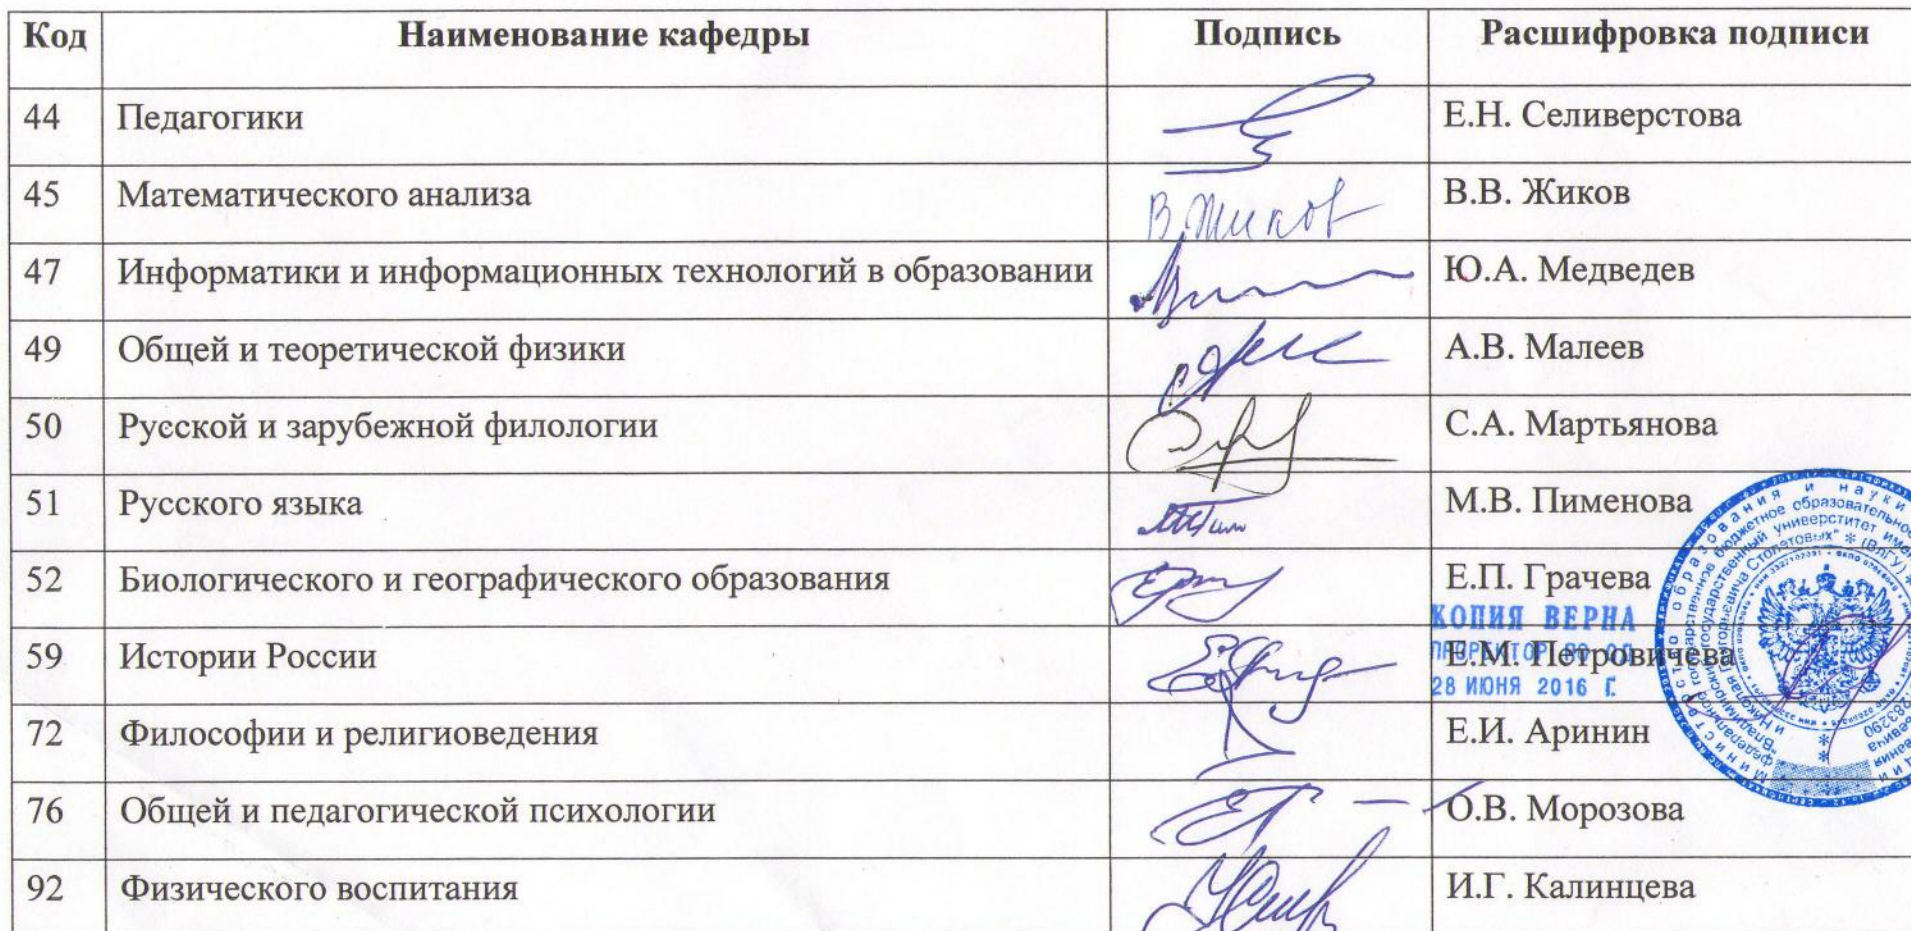 Код Наименование кафедры Подпись Расшифровка подписи
44 Педагогики Е.Н. Селиверстова
45 Математического анализа В.Жиков В.В. Жиков
47 Информатики и информационных технологий в образовании Ю.А. Медведев
49 Общей и теоретической физики А.В. Малеев
50 Русской и зарубежной филологии С.А. Мартьянова
51 Русского языка М.В. Пименова
52 Биологического и географического образования Е.П. Грачева
КОПИЯ ВЕРНА
59 Истории России Е.М. Петровичева
ПРОРЕКТОР ПО ОД
28 ИЮНЯ 2016 Г.
72 Философии и религиоведения Е.И. Аринин
76 Общей и педагогической психологии О.В. Морозова
92 Физического воспитания И.Г. Калинцева